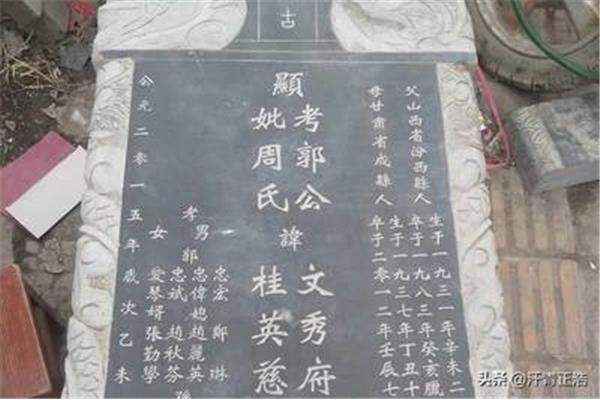 古
父山西省汾西縣人
生于一九三一年辛未二
卒于一九八三年癸亥臘
母甘肅省成縣人
生于一九三七年丁丑十
卒于二零一二年壬辰七
顯考郭公諱文秀府
妣周氏桂英慈
孝男郭忠宏 鄭琳
忠偉媳趙麗英
忠斌 趙秋芬
女愛琴婿張勤學
孫
公元二零一五年歲次乙未
头条 @汗青正浩